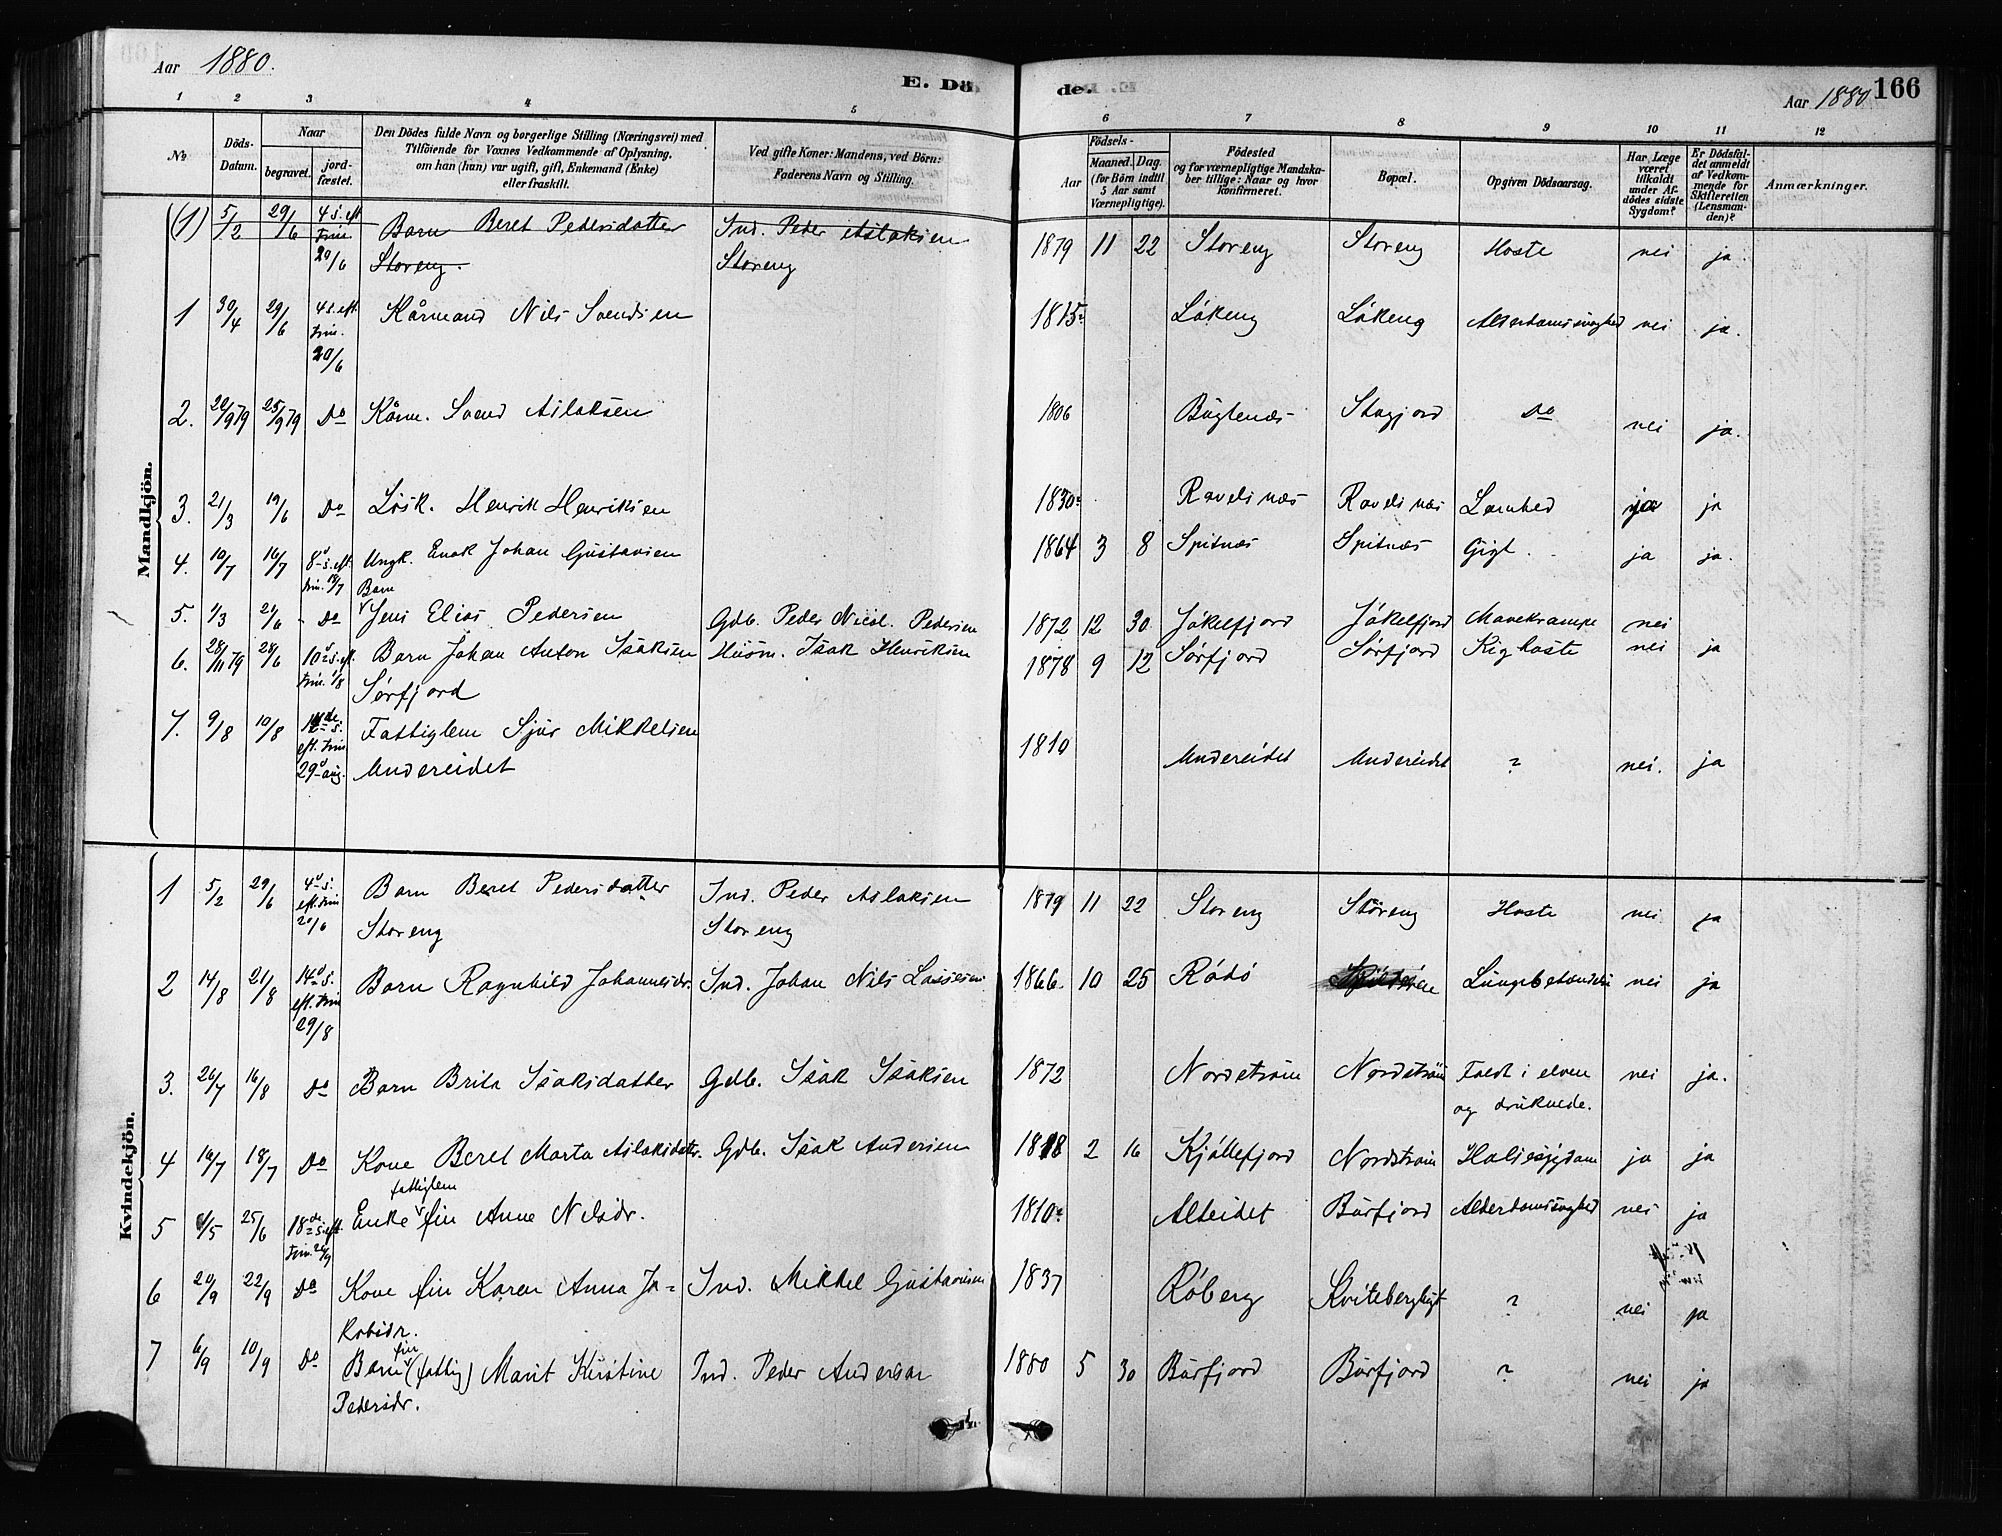 Aar 1880.
E. Döde.
Aar 1880
166
1 2 3 4 5 6 7 8 9 10 11 12
No
Döds-Datum.
Naar
begravet.
jord-fæstet.
Den Dödes fulde Navn og borgerlige Stilling (Næringsvei) med
Tilföiende for Voxnes Vedkommende af Oplysning,
om han (hun) var ugift, gift, Enkemand (Enke)
eller fraskilt.
Ved gifte Koner: Mandens, ved Börn:
Faderens Navn og Stilling.
Födsels-
Aar
Maaned. Dag.
(for Börn indtil
5 Aar samt
Værnepligtige).
Födested
og for værnepligtige Mandska-
ber tillige: Naar og hvor
konfirmeret.
Bopæl.
Opgiven Dödsaarsag.
Har Læge
været
tilkaldt
under Af-
dödes sidste
Sygdom?
Er Dödsfal-
det anmeldt
af Vedkom-
mende for
Skifteretten
(Lensman-
den)?
Anmærkninger.
Mandkjön.
(1) 5/2 29/6 4 s. eft. trin. 20/6 Barn Beret Pedersdatter Storeng. Ind. Peder Aslaksen Storeng 1879 11 22 Storeng Storeng Hoste nei ja.
1 30/4 29/6 4 s. eft. trin. 20/6 Kårmand Nils Svendsen 1815 Låkeng Låkeng Alderdomssvaghed nei ja.
2. 22/9 79 25/9 79 Do Kårm. Svend Aslaksen 1806 Buglenæs Stagjord Do nei ja.
3. 21/3 19/6 Do Lösk. Henrik Henriksen 1830 Ravelsnæs Ravelsnæs Lamhed ja ja
4. 10/7 16/7 8 s. eft. trin. 18/7 Ungk. Enok Johan Gustavsen 1864 3 8 Spitnæs Spitnæs Gigt. ja ja.
5. 1/3 21/6 Do Barn Jens Elias Pedersen Gdb. Peder Nicol. Pedersen 1872 12 30 Jökelfjord Jökelfjord Mavekrampe nei
6. 28/11 79 28/6 10 s. eft. trin. 1/8 Barn Johan Anton Isaksen Sörfjord Husm. Isak Henriksen 1878 9 12 Sörfjord Sörfjord Kighoste nei ja
7. 9/8 10/8 s. eft. trin. 29 aug. Fattiglem Sjur Mikkelsen Undereidet 1810 Undereidet Undereidet ? nei. ja
Kvindekjön.
1 5/2 29/6 4 s. eft. trin 20/6 Barn Beret Pedersdatter Storeng Ind. Peder Aslaksen Storeng 1879 11 22 Storeng Storeng Hoste nei ja
2 14/8 21/8 14 s. eft. trin 29/8 Barn Ragnhild Johannesdr. Ind. Johan Nils Lassesen 1866 10 25 Rödö Lungebetændelse nei ja
3. 26/7 16/8 Do Barn Brita Isaksdatter Gdb. Isak Isaksen 1872 Nordström Nordström Faldt i elven og druknede. nei ja.
4 16/7 18/7 Do Kone Beret Marta Aslaksdatr. Gdb. Isak Andersen 1818 2 16 Kjöllefjord Nordström Halsesygdom ja ja
5 6/5 25/6 18 s. eft. trin. 26/9 Enke fattiglem fin Anne Nilsdr. 1810 Alteidet Burfjord Alderdomssvaghed nei ja
6 20/9 22/9 Do Kone fin Karen Anna Ja-kobsdr. Ind. Mikkel Gustavsen 1837 Röberg Kvitebergligt ? nei ja
7 6/9 10/9 Do Barn fin (fattig) Marit Kirstine Pedersdr. Ind. Peder Andersen 1880 5 30 Burfjord Burfjord ? nei ja